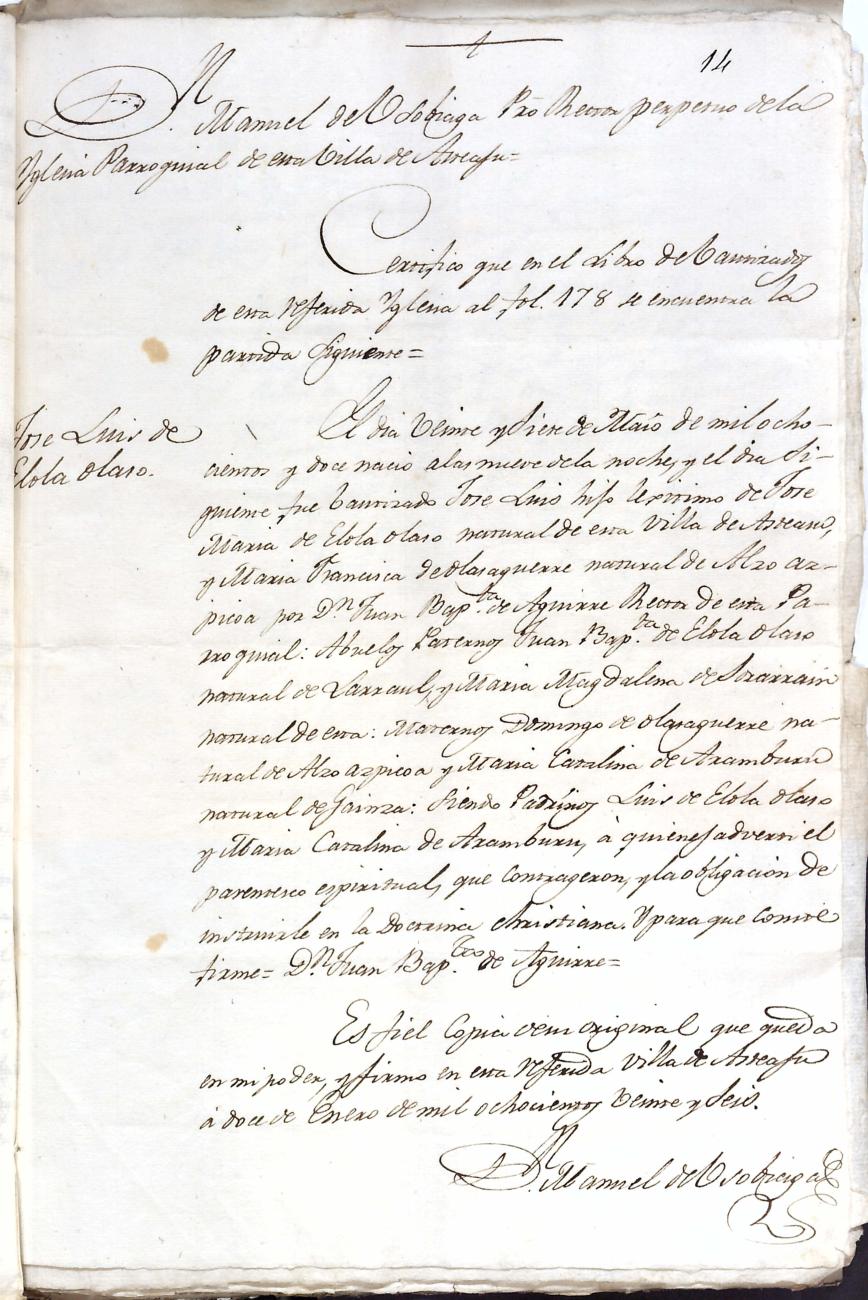 14
Dn. Manuel de Usobiaga Pro Rector perpetuo de la
Yglesia Parroquial de esta Villa de Asteasu=
Certifico que en el Libro de Bautizados
de esta referida Yglesia al fol. 178 se encuentra la
partida siguiente=
Jose Luis de
Elola olaso.
El dia veinte y siete de Maio de mil ocho-
cientos y doce nacio a las nueve de la noche, y el dia si-
guiente fue bautizado Jose Luis hijo lexitimo de Jose
Maria de Elola olaso natural de esta Villa de Asteasu,
y Maria Francisca de olasaguerre natural de Alzo az-
picoa por Dn. Juan Bap.ta de Aguirre Rector de esta Pa-
rroquial: Abuelos Paternos Juan Bap.ta de Elola olaso
natural de Larraul, y Maria Magdalena de Sorarrain
natural de esta: Maternos Domingo de olasaguerre na-
tural de Alzo azpicoa y Maria Catalina de Aramburu
natural de Gainza: siendo Padrinos Luis de Elola olaso
y Maria Catalina de Aramburu, à quienes adverti el
parentesco espiritual, que contrageron, y la obligación de
instruirle en la Doctrina christiana. Y para que conste
firme= Dn. Juan Bap.ta de Aguirre=
Es fiel Copia de su original que queda
en mi poder, y firmo en esta referida Villa de Asteasu
à doce de Enero de mil ochocientos veinte y seis.
Dn. Manuel de Usobiaga